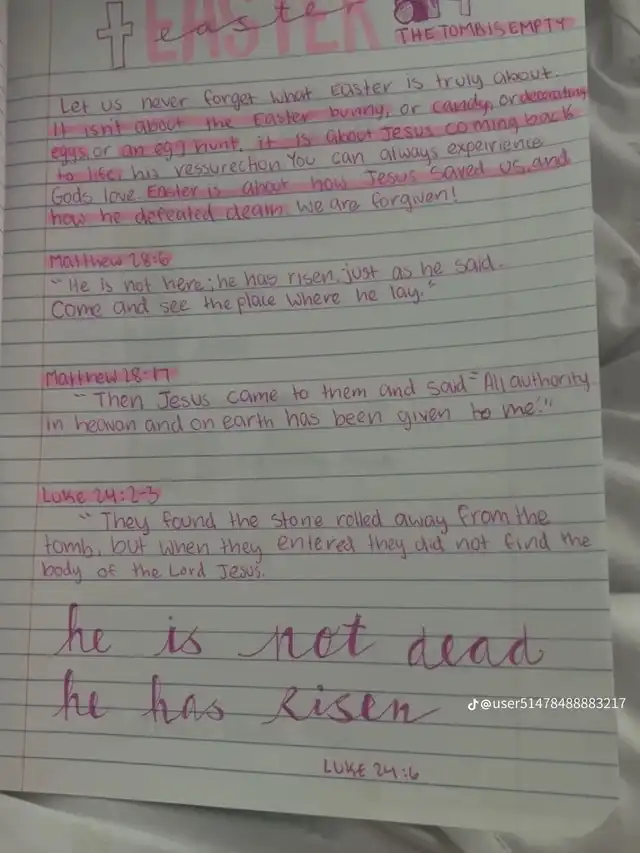 EASTER
easter
THE TOMB IS EMPTY
Let us never forget what Easter is truly about.
It isn't about the Easter bunny, or candy, or decorating
eggs, or an egg hunt, it is about Jesus coming back
to life, his ressurection You can always expeirience
Gods love Easter is about how Jesus saved us, and
how he defeated death We are forgiven!
Matthew 28:6
"He is not here; he has risen, just as he said.
Come and see the place where he lay."
Matthew 28:17
"Then Jesus came to them and said "All authority
in heavan and on earth has been given to me.""
Luke 24:2-3
"They found the stone rolled away from the
tomb, but when they entered they did not find the
body of the Lord Jesus.
he is not dead
he has risen
@user51478488883217
LUKE 24:6